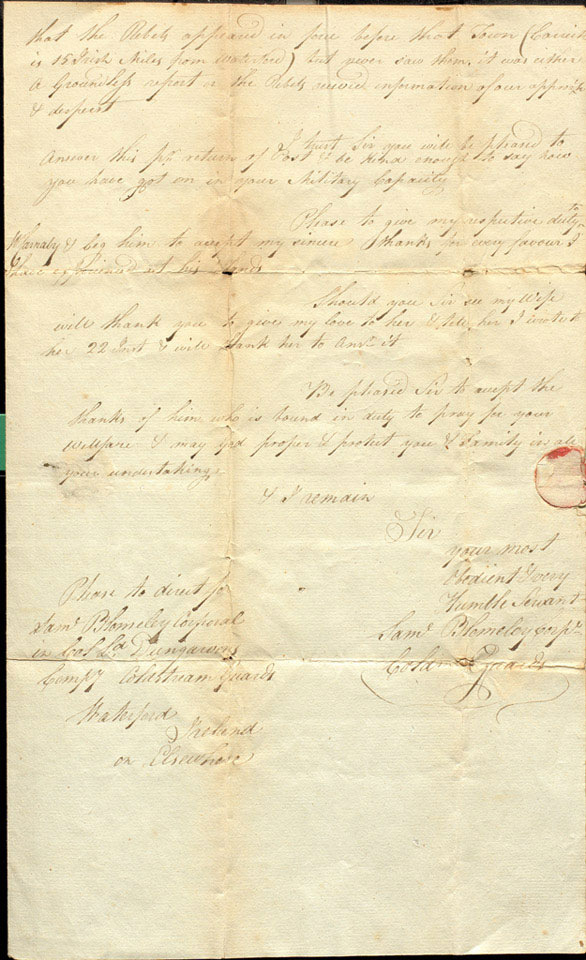 that the Rebels appeared in force before that Town (Carrick
is 15 Irish Miles from Waterford) but never saw them. it was either
A Groundless report or the Rebels received information of our approach
& despers't
I trust Sir you will be pleased to
Answer this pr. return of Post & be kind enough to say how
you have got on in your Military Capacity
Please to give my respective duty to
& beg him to accept my sincere Thanks for every favour I
have experienced at his Hands
Should you Sir see my Wife
will thank you to give my love to her & tell her I wrote to
her 22 Inst & will thank her to Ansr. it
Be pleased Sir to accept the
thanks of him who is bound in duty to pray for your
Wellfare & may God prosper & protect you & Family in all
your undertakings
& I remain
Sir
your most
Obedient & very
Humble Servant
Saml. Blomeley Corpl.
Coldm. Guards
Please to direct for
Saml. Blomeley Corporal
in Col Ld. Dungarvons
Compy. Coldstream Guards
Waterford
Ireland
or Elsewhere